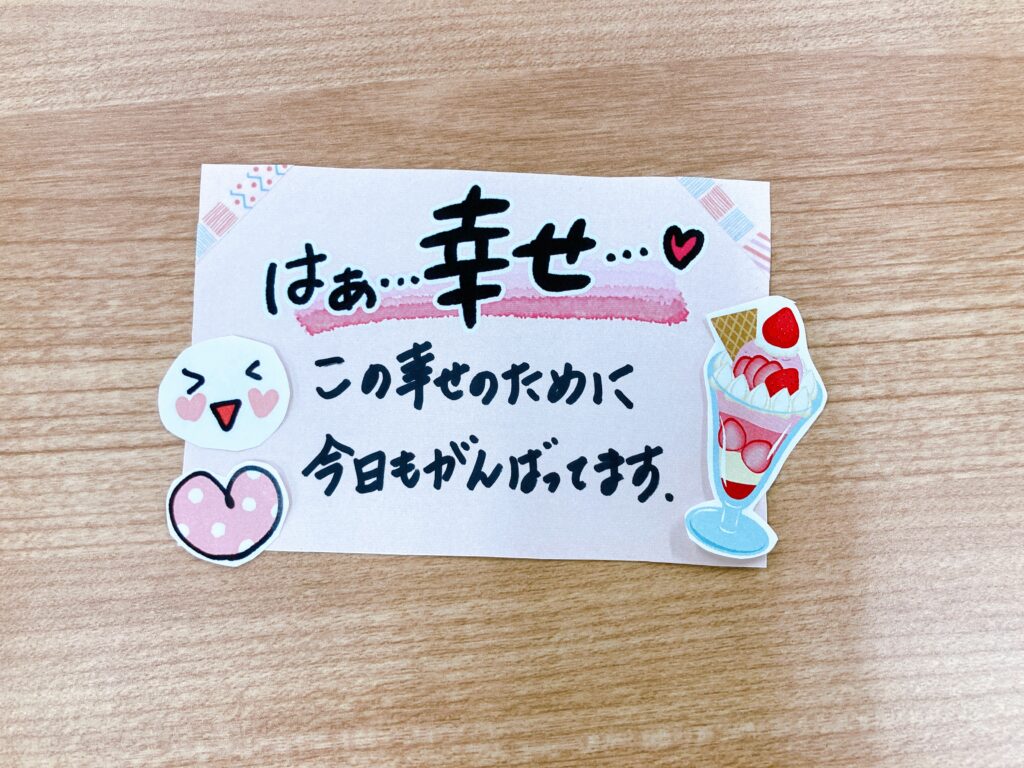 はぁ…幸せ…♥
この幸せのために
今日もがんばってます.